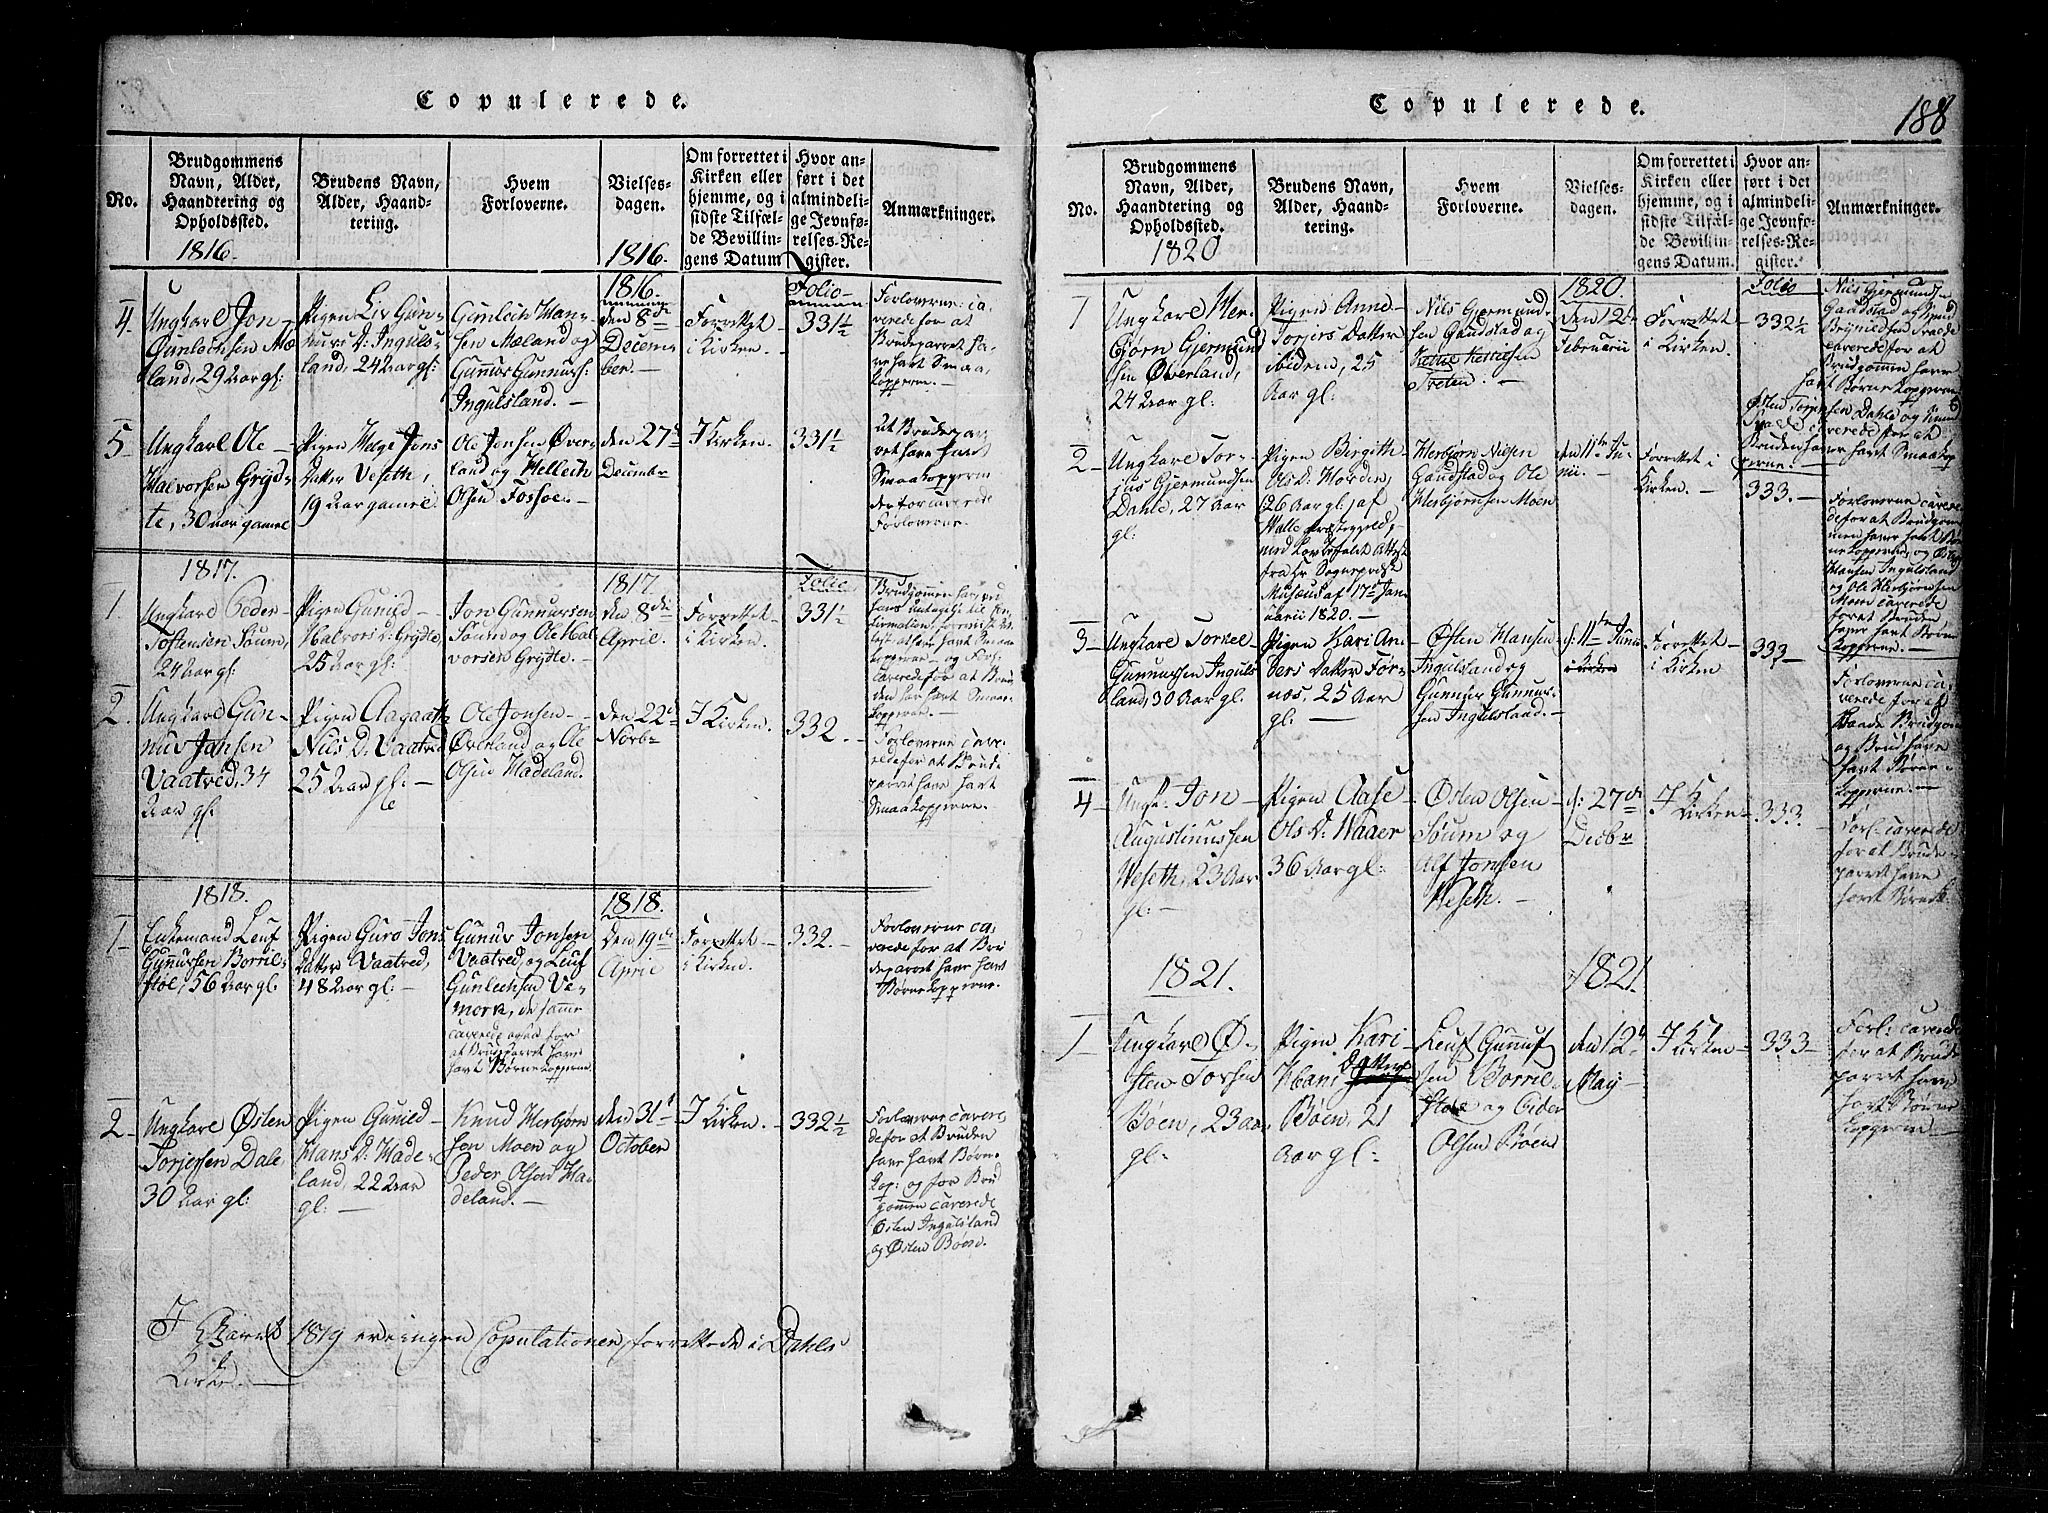 Copulerede.
No.
Brudgommens
Navn, Alder,
Haandtering og
Opholdssted.
1816.
Brudens Navn,
Alder, Haand-
tering.
Hvem
Forloverne.
Vielses-
dagen.
1816.
Om forrettet i
Kirken eller
hjemme, og i
sidste Tilfæl-
de Bevillin-
gens Datum
Hvor an-
ført i det
almindeli-
ge Jevnfø-
relses-Re-
gister.
Anmærkninger.
1816.
Folio
4.
Ungkarl Jon
Gunlechsen Mæ-
land, 29 Aar gl:
Pigen Liv Gun-
nurs D: Inguls-
land, 24 Aar gl:
Gunlech Han-
sen Mæland og
Gunnor Gunnurs:
Ingulsland. -
den 8de
Decem-
ber.
Forrettet
i Kirken.
331½
Forloverne ca-
verede for at
Brudeparret ha-
ve havt Smaa-
kopperne. -
5
Ungkarl Ole
Halvorsen Gryd-
te, 30 aar gamle
Pigen Helge Jons
Datter Veseth,
19 Aar gamle
Ole Jonsen Øver-
land og Hellech
Olsen Fossoe. -
den 27de
Decembr
I Kirken.
331½
At Brudepar-
ret have havt
Smaakopperne
derfor caverede
Forloverne.
1817.
1817.
Folio
1.
Ungkarl Peder
Toftensen Soum,
24 Aar gl:
Pigen Gunild
Halvors D: Grydte,
25 Aar gl:
Jon Gunnursen
Soum og Ole Hal-
vorsen Grydte. -
den 8de
April.
Forrettet
i Kirken.
331½
caverede for at Bru-
den har havt Smaa-
kopperne.
2.
Ungkarl Gun-
nuv Jansen
Vaatved, 34
Aar gl:
Pigen Aagaath
Nils D: Vaatved
25 Aar gl: -
Ole Jonsen -
Øverland og Ole
Olsen Hadeland.
den 22de
Novbr
I Kirken.
332.
Forloverne cave-
rede for at Brude-
parret have havt
Smaakopperne.
1818.
1818.
1
Enkemand Leuf
Gunnursen Borril-
stoe, 56 Aar gl.
Pigen Guro Jons
Datter Vaatved,
48 Aar gl: -
Gunuv Jonsen
Vaatved og Leuf
Gunlechsen Ve-
mork, de samme
caverede ogsaa for
at Brudeparret have
havt Børnekopperne.
Den 19de
April
Forrettet
i Kirken.
332.
Forloverne ca-
verede for at Bru-
deparret have havt
Børnekopperne.
2
Ungkarl Østen
Torjersen Dale,
30 Aar gl:
Pigen Gunild
Hans D: Hade-
land, 22 Aar
gl: -
Knud Herbjørn
sen Moen og
Peder Olsen Ha-
deland. -
den 31te
October
I Kirken.
332½
Forloverne cavere-
de for at Bruden
have havt Børne-
kop: og for Brud
gommen caverede
Østen Ingulsland
og Østen Bøen.
I Aaret 1819 ere ingen Copulationer forrettede i Dahls
Kirke. -
Copulerede.
188
No.
Brudgommens
Navn, Alder,
Haandtering og
Opholdssted.
1820
Brudens Navn,
Alder, Haand-
tering.
Hvem
Forloverne.
Vielses-
dagen.
Om forrettet i
Kirken eller
hjemme, og i
sidste Tilfæl-
de Bevillin-
gens Datum.
Hvor an-
ført i det
almindeli-
ge Jevnfø-
relses-Re-
gister.
Anmærkninger.
1820.
Folio
1
Ungkarl Her-
bjørn Gjermund
sen Øverland,
24 Aar gl:
Pigen Anne
Torjers Datter
ibidem, 25
Aar gl:
Nils Gjermund-
sen Gaudstad og
Ketil Ketilsen
Træten. -
Den 12te
Februarii
Forrettet
i Kirken.
332½
Nils Gjermunds-
Gaudstad og Knud
caverede for at
Brudgommen have
havt Børnekopperne
2
Ungkarl Tor-
jus Gjermundsen
Dahle, 27 Aar
gl:
Pigen Birgith
Ols D: Harden,
26 Aar gl:, af
Walle Præstegjeld,
med Lovbefalet Attest
fra Hr Sognepræst
Musæus af 17de Jan-
uarii 1820. -
Herbjørn Nilsen
Gaudstad og Ole
Herbjørnsen Moen
den 11te Ju-
nii.
Forrettet i
Kirken. -
333. -
Østen Torjersen Dahle og Knud
caverede for at
Bruden haver havt Smaakop-
perne.
3
Ungkarl Torkel
Gunnursen Inguls
land, 30 Aar gl.
Pigen Kari An-
ders Datter For-
næs, 25 Aar
gl: -
Østen Hansen
Ingulsland og
Gunnur Gunnur-
sen Ingulsland. -
d: 11te Junii
Forrettet
i Kirken
333
Forloverne cavere-
de for at Brudgom-
men haver havt Bør-
nekopperne, og Østen
Hansen Ingulsland
og Ole Herbjørnsen
Moen caverede
for at Bruden
haver havt Børne
kopperne.
Forloverne ca-
verede for at
Baade Brudgom
og Brud have
havt Børne-
kopperne. -
4
Ungk: Jon
Augustinussen
Veseth, 23 Aar
gl: -
Pigen Aase
Ols D: Waaer
36 Aar gl:
Østen Olsen
Søum og
Alf Jonsen
Veseth. -
d: 27de
Decbr
I
Kirken
333.
Forl: caverede
for at Brude-
parret have
havt Børnek:
1821.
1821.
1
Ungkarl Ø-
sten Torsen
Bøen, 23 aar
gl:
Pigen Kari
Hans Datter
Bøen, 21
Aar gl:
Leuf Gunuf
sen Borril-
stoe og Peder
Olsen Bøen
den 12te
Maj
I Kirken
333
Forl: caverede
for at Brude
parret have
havt Børne
kopperne